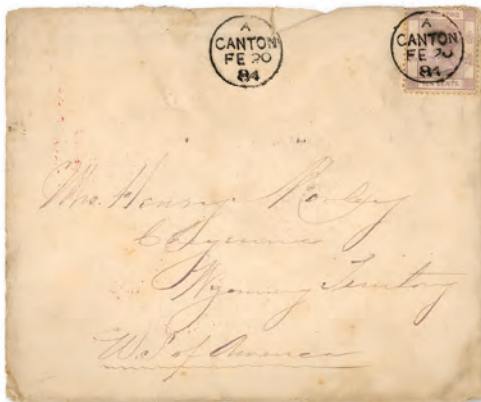 A
CANTON
FE 20
84
A
CANTON
FE 20
84
TEN CENTS
Mrs. Henry
Cheyenne
Wyoming Territory
U.S. of America